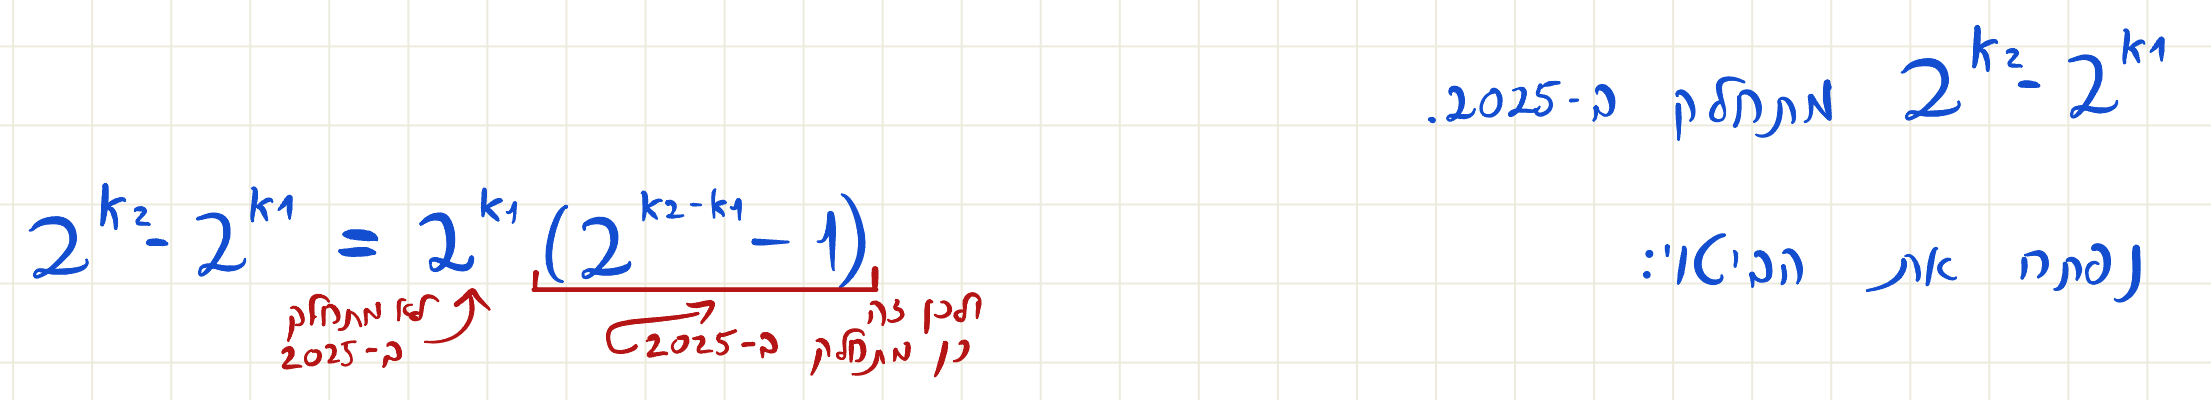 2^{k2} - 2^{k1} מתחלק ב-2025.
נפתח את הביטוי:
2^{k2} - 2^{k1} = 2^{k1} (2^{k2-k1} - 1)
לא מתחלק
ב-2025
ולכן זה
כן מתחלק
ב-2025